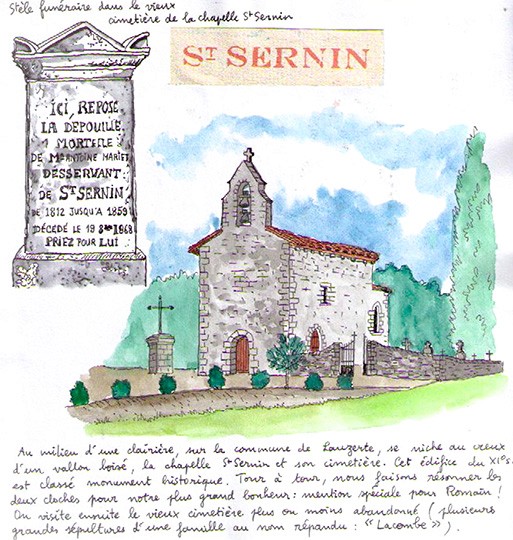 Stèle funéraire dans le vieux
cimetière de la chapelle St Sernin
ST SERNIN
ICI REPOSE
LA DEPOUILLE
MORTELLE
DE MRE ANTOINE MARIET
DESSERVANT
DE ST SERNIN
DE 1812 JUSQU'A 1859
DÉCÉDÉ LE 19 8bre 1868
PRIEZ POUR LUI
Au milieu d'une clairière, sur la commune de Lauzerte, se niche au creux
d'un vallon boisé, la chapelle St Sernin et son cimetière. Cet édifice du XIe s.
est classé monument historique. Tour à tour, nous faisons résonner les
deux cloches pour notre plus grand bonheur : mention spéciale pour Romain !
On visite ensuite le vieux cimetière plus ou moins abandonné (plusieurs
grandes sépultures d'une famille au nom répandu : "Lacombe").